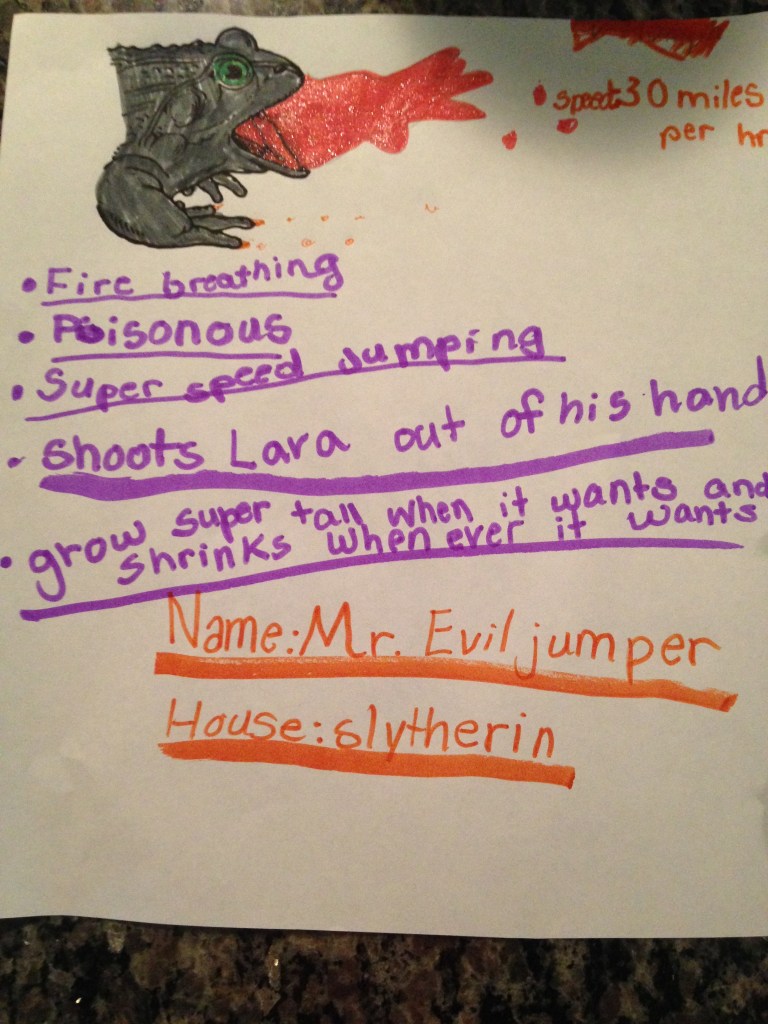 speed30 miles
per hr
• Fire breathing
• Poisonous
• Super speed Jumping
• Shoots Lara out of his hand
• grow super tall when it wants and
shrinks when ever it wants
Name: Mr. Evil jumper
House: slytherin